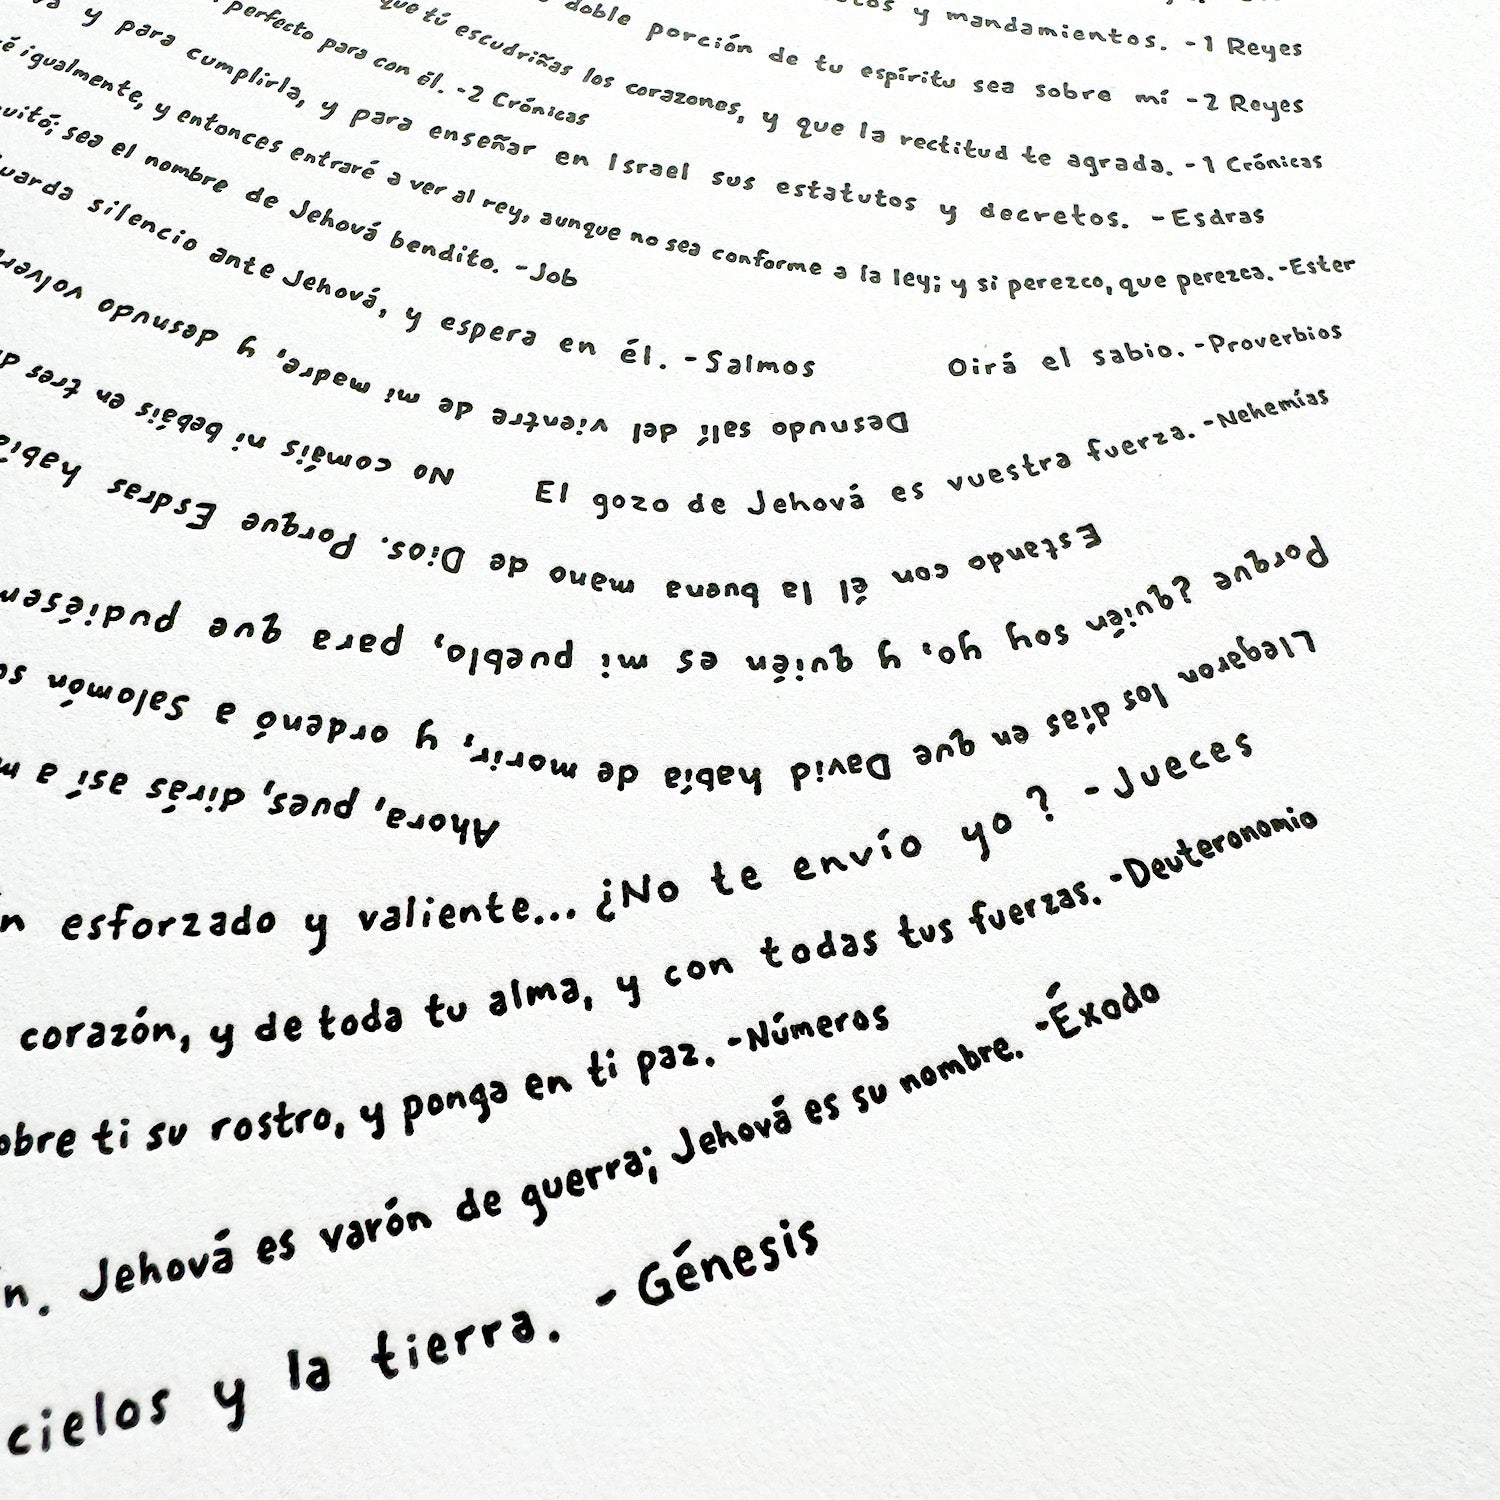 y mandamientos. -1 Reyes
doble porción de tu espíritu sea sobre mí -2 Reyes
que tú escudriñas los corazones, y que la rectitud te agrada. -1 Crónicas
perfecto para con él. -2 Crónicas
y para cumplirla, y para enseñar en Israel sus estatutos y decretos. -Esdras
igualmente, y entonces entraré a ver al rey, aunque no sea conforme a la ley; y si perezco, que perezca. -Ester
sea el nombre de Jehová bendito. -Job
silencio ante Jehová, y espera en él. -Salmos
Oirá el sabio. -Proverbios
Desnudo salí del vientre de mi madre, y desnudo
No comáis ni bebáis en tres
El gozo de Jehová es vuestra fuerza. -Nehemías
Estando con él la buena mano de Dios. Porque Esdras
Porque ¿quién soy yo, y quién es mi pueblo, para que pudiésem
Llegaron los días en que David había de morir, y ordenó a Salomón
Ahora, pues, dirás así a
esforzado y valiente... ¿No te envío yo? -Jueces
corazón, y de toda tu alma, y con todas tus fuerzas. -Deuteronomio
obre ti su rostro, y ponga en ti paz. -Números
n. Jehová es varón de guerra; Jehová es su nombre. -Éxodo
cielos y la tierra. - Génesis